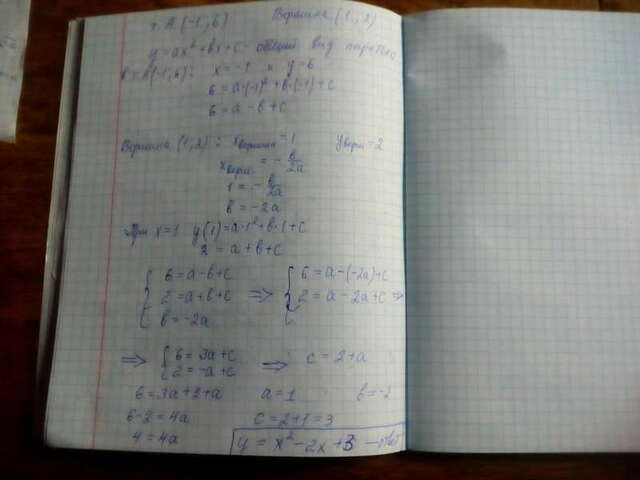 т. А (-1, 6) Вершина (1, 2)
y = ax² + bx + c - общий вид параболы
т. А(-1, 6): x = -1 и y = 6
6 = a·(-1)² + b·(-1) + c
6 = a - b + c
Вершина (1, 2): x вершины = 1 y верш = 2
x верш. = - b/2a
1 = - b/2a
b = -2a
При x = 1 y(1) = a·1² + b·1 + c
2 = a + b + c
{ 6 = a - b + c { 6 = a - (-2a) + c
2 = a + b + c ⇒ 2 = a - 2a + c ⇒
b = -2a
⇒ { 6 = 3a + c ⇒ c = 2 + a
2 = -a + c
6 = 3a + 2 + a a = 1 b = -2
6 - 2 = 4a c = 2 + 1 = 3
4 = 4a y = x² - 2x + 3 - ответ